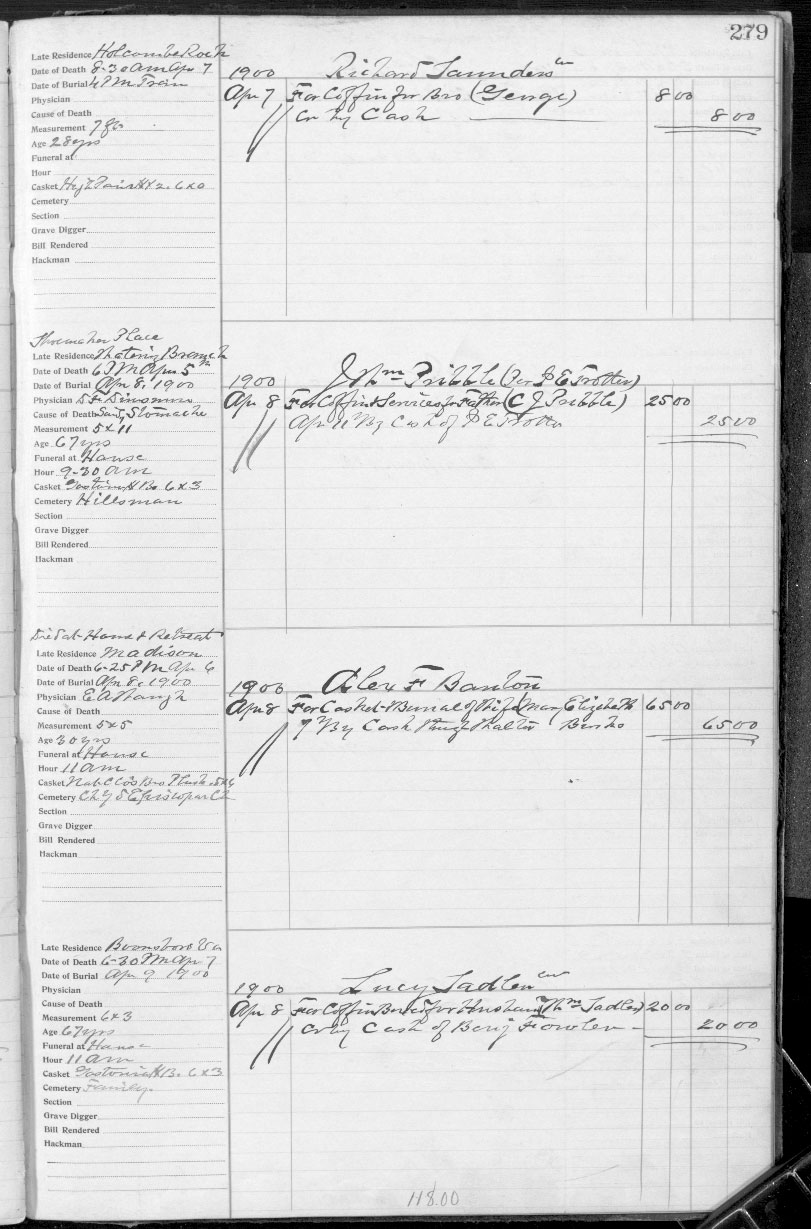 279
Late Residence Holcombe Rock
Date of Death 8-30 am Apr 7
Date of Burial 4 PM Train
Physician
Cause of Death
Measurement
Age 28 yrs
Funeral at
Hour
Casket 6x0
Cemetery
Section
Grave Digger
Bill Rendered
Hackman
1900 Richard Saunders
Apr 7 For Coffin for Bro (George) 8 00
Cr by Cash 8 00
Place
Late Residence Branch
Date of Death 6 PM Apr 5th
Date of Burial Apr 8, 1900
Physician
Cause of Death Stomache
Measurement 5x11
Age 67 yrs
Funeral at House
Hour 9-30 am
Casket 6x3
Cemetery Hillsman
Section
Grave Digger
Bill Rendered
Hackman
1900 J Wm Pribble (Per P E Trotter)
Apr 8 For Coffin & Services for Father (C J Pribble) 25 00
Apr 11 By Cash of P E Trotter 25 00
Died at Home & Retreat
Late Residence Madison
Date of Death 6-25 PM Apr 6
Date of Burial Apr 8, 1900
Physician
Cause of Death
Measurement 5x5
Age 30 yrs
Funeral at House
Hour 11 am
Casket Bro Plush 5x6
Cemetery Episcopal Ch
Section
Grave Digger
Bill Rendered
Hackman
1900 Alex F Banton
Apr 8 For Casket & Burial of Wife (Mary Elizabeth 65 00
By Cash Walter 65 00
Late Residence Boonsboro Va
Date of Death 6-30 PM Apr 7
Date of Burial Apr 9 1900
Physician
Cause of Death
Measurement 6x3
Age 67 yrs
Funeral at House
Hour 11 am
Casket Gastonia 6x3
Cemetery Family
Section
Grave Digger
Bill Rendered
Hackman
1900 Lucy Sadler
Apr 8 For Coffin Box &c for Husband (Thm Sadler) 20 00
Cr by Cash of Benj Fowler 20 00
118.00